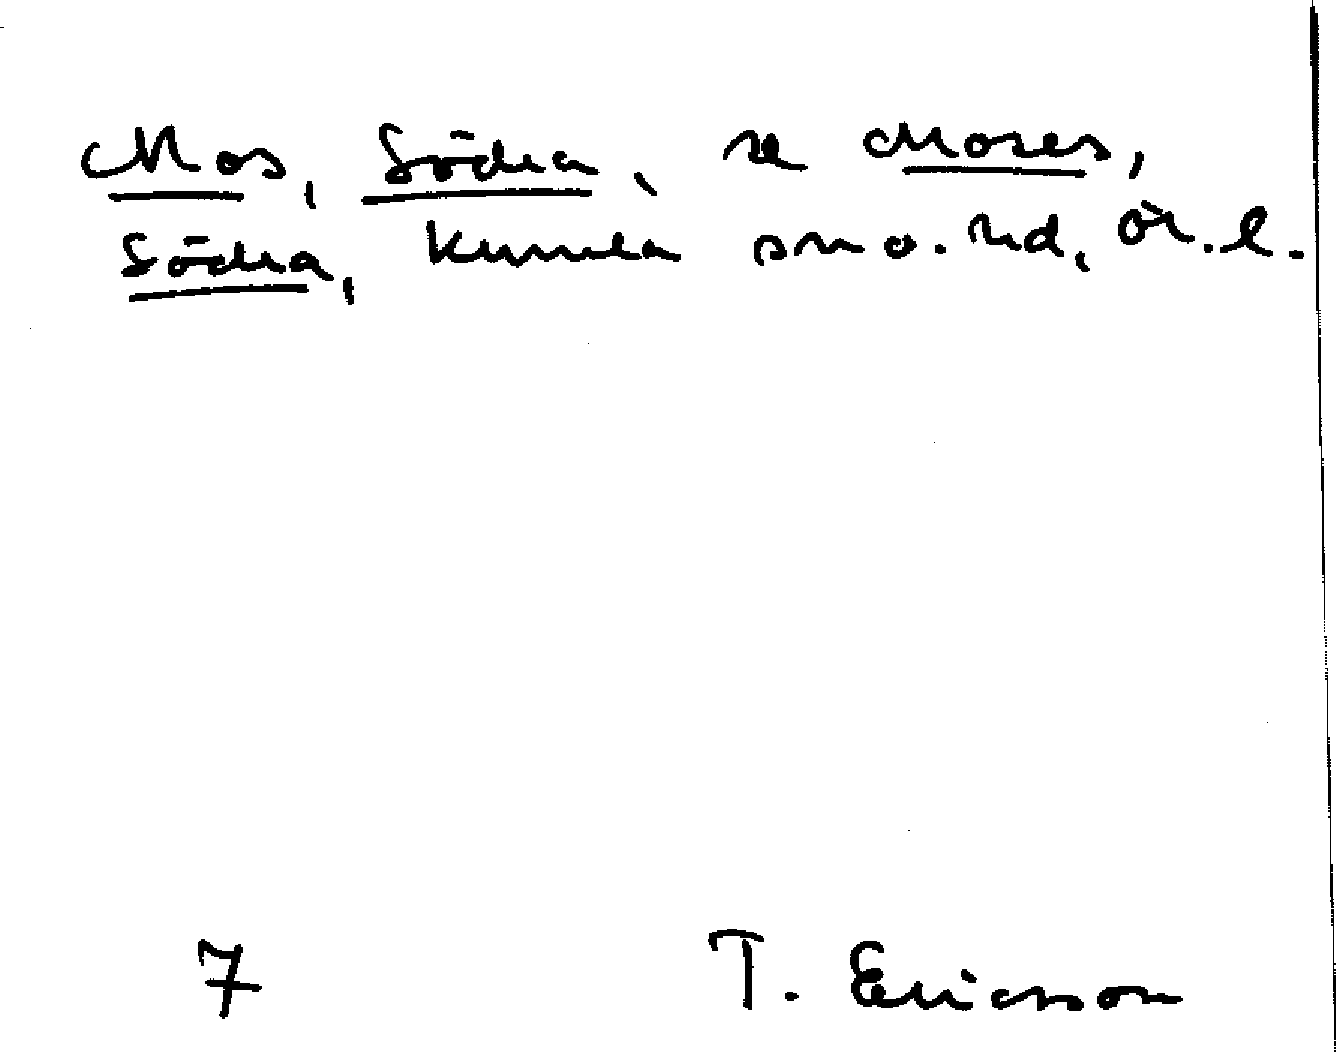 Mos, Södra, se Moses,
Södra, Kumla sn o. hd, Ör. l.
7 T. Ericsson